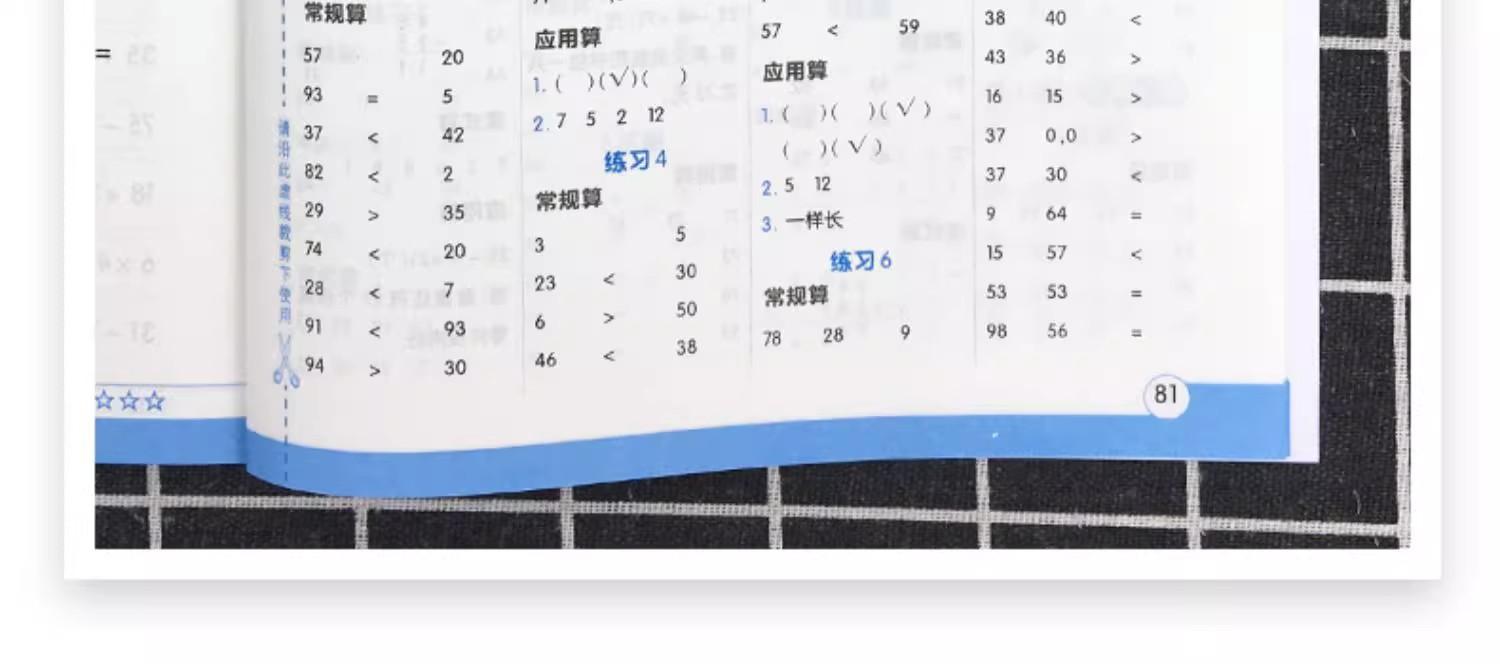 =
☆☆☆
请沿此虚线裁剪下使用
常规算
57 20
93 = 5
37 < 42
82 < 2
29 > 35
74 < 20
28 < 7
91 < 93
94 > 30
应用算
1. ( )(√)( )
2. 7 5 2 12
练习4
常规算
3 5
23 < 30
6 > 50
46 < 38
57 < 59
应用算
1. ( )( )(√)
( )(√)
2. 5 12
3. 一样长
练习6
常规算
78 28 9
38 40 <
43 36 >
16 15 >
37 0,0 >
37 30 <
9 64 =
15 57 <
53 53 =
98 56 =
81